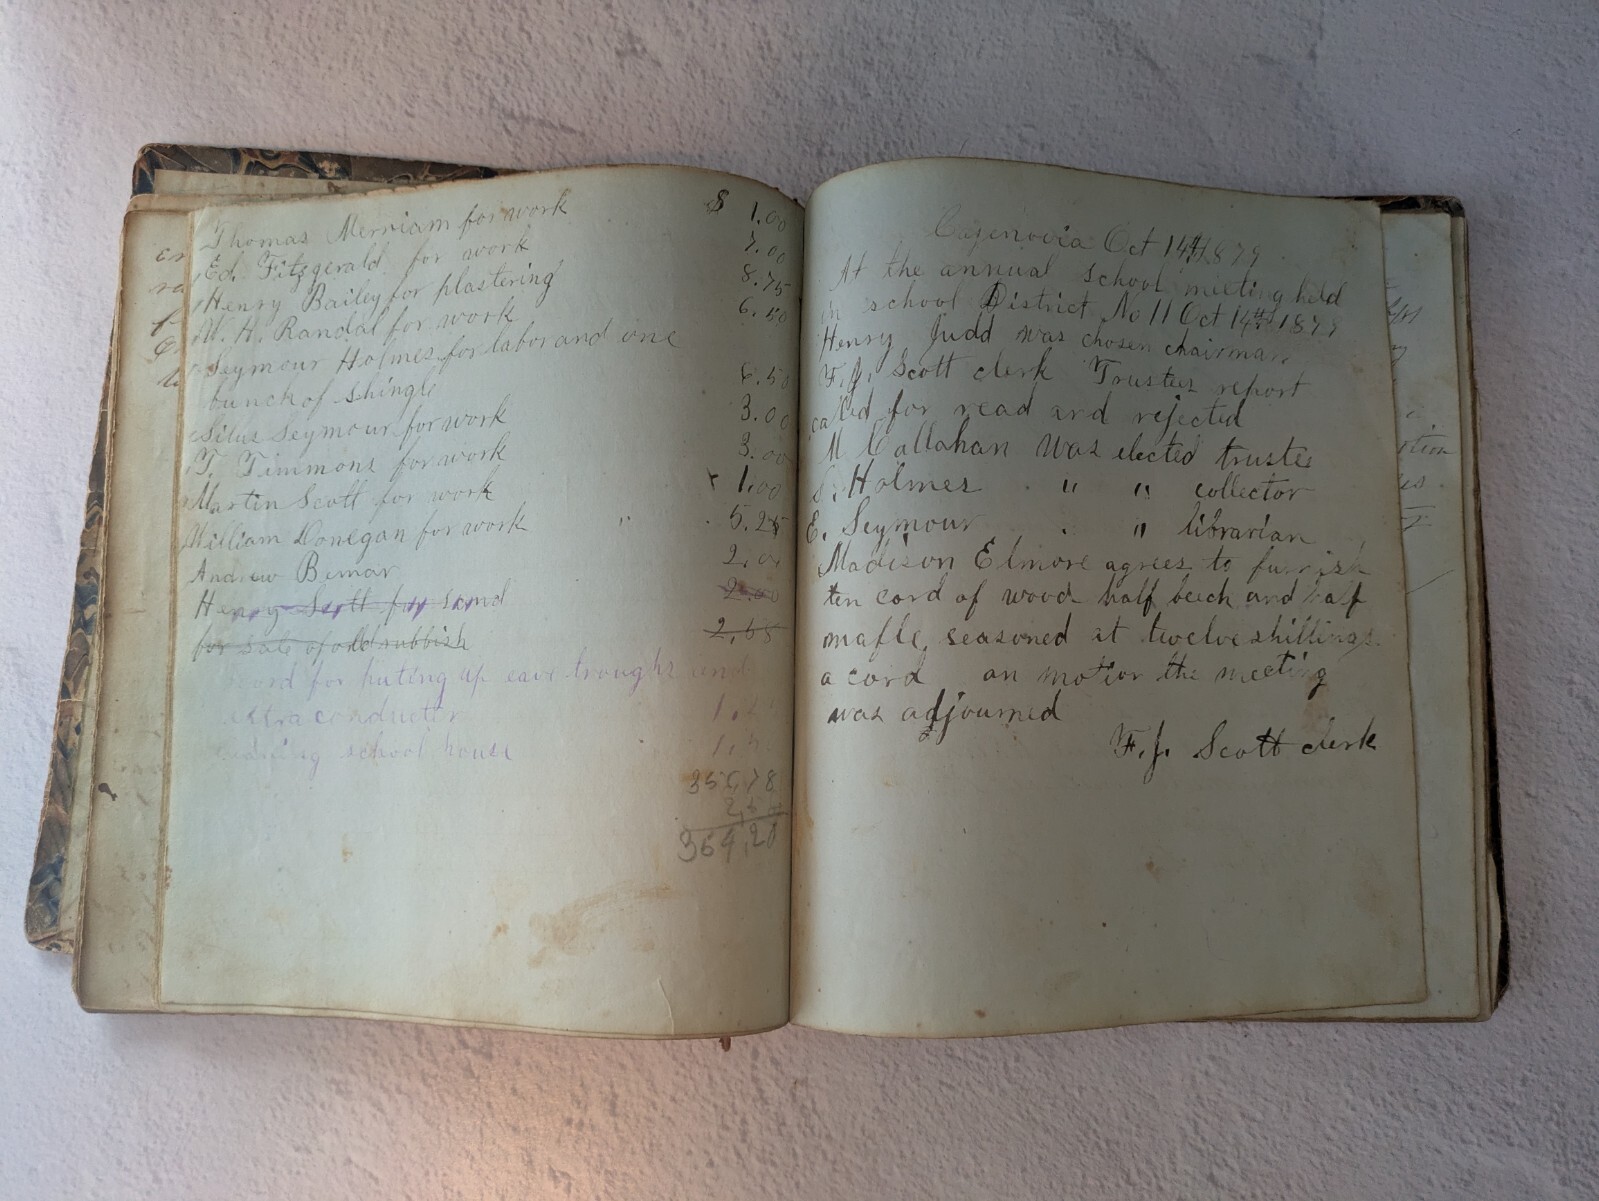 Thomas Merriam for work $ 1.00
Ed. Fitzgerald for work 7.00
Henry Bailey for plastering 8.75
W. H. Randal for work 6.50
Seymour Holmes for labor and one
bunch of shingle 6.50
Silus Seymour for work 3.00
T. Timmons for work 3.00
Martin Scott for work 1.00
William Donegan for work " 5.25
Andrew Bemar 2.00
Henry Scott for sand 2.00
for sale of old rubbish 2,65
for puting up eave troughs and
extra conductor
school house
364,20
Cazinovia Oct 14th 1879
At the annual school meeting held
in school District No 11 Oct 14th 1879
Henry Judd was chosen chairman
F. J. Scott clerk Trustees report
called for read and rejected
M Callahan was elected trustee
S. Holmes " " collector
E. Seymour " librarian
Madison Elmore agrees to furnish
ten cord of wood half beech and half
mafle seasoned at twelve shillings
a cord on motion the meeting
was adjourned
F. J. Scott clerk